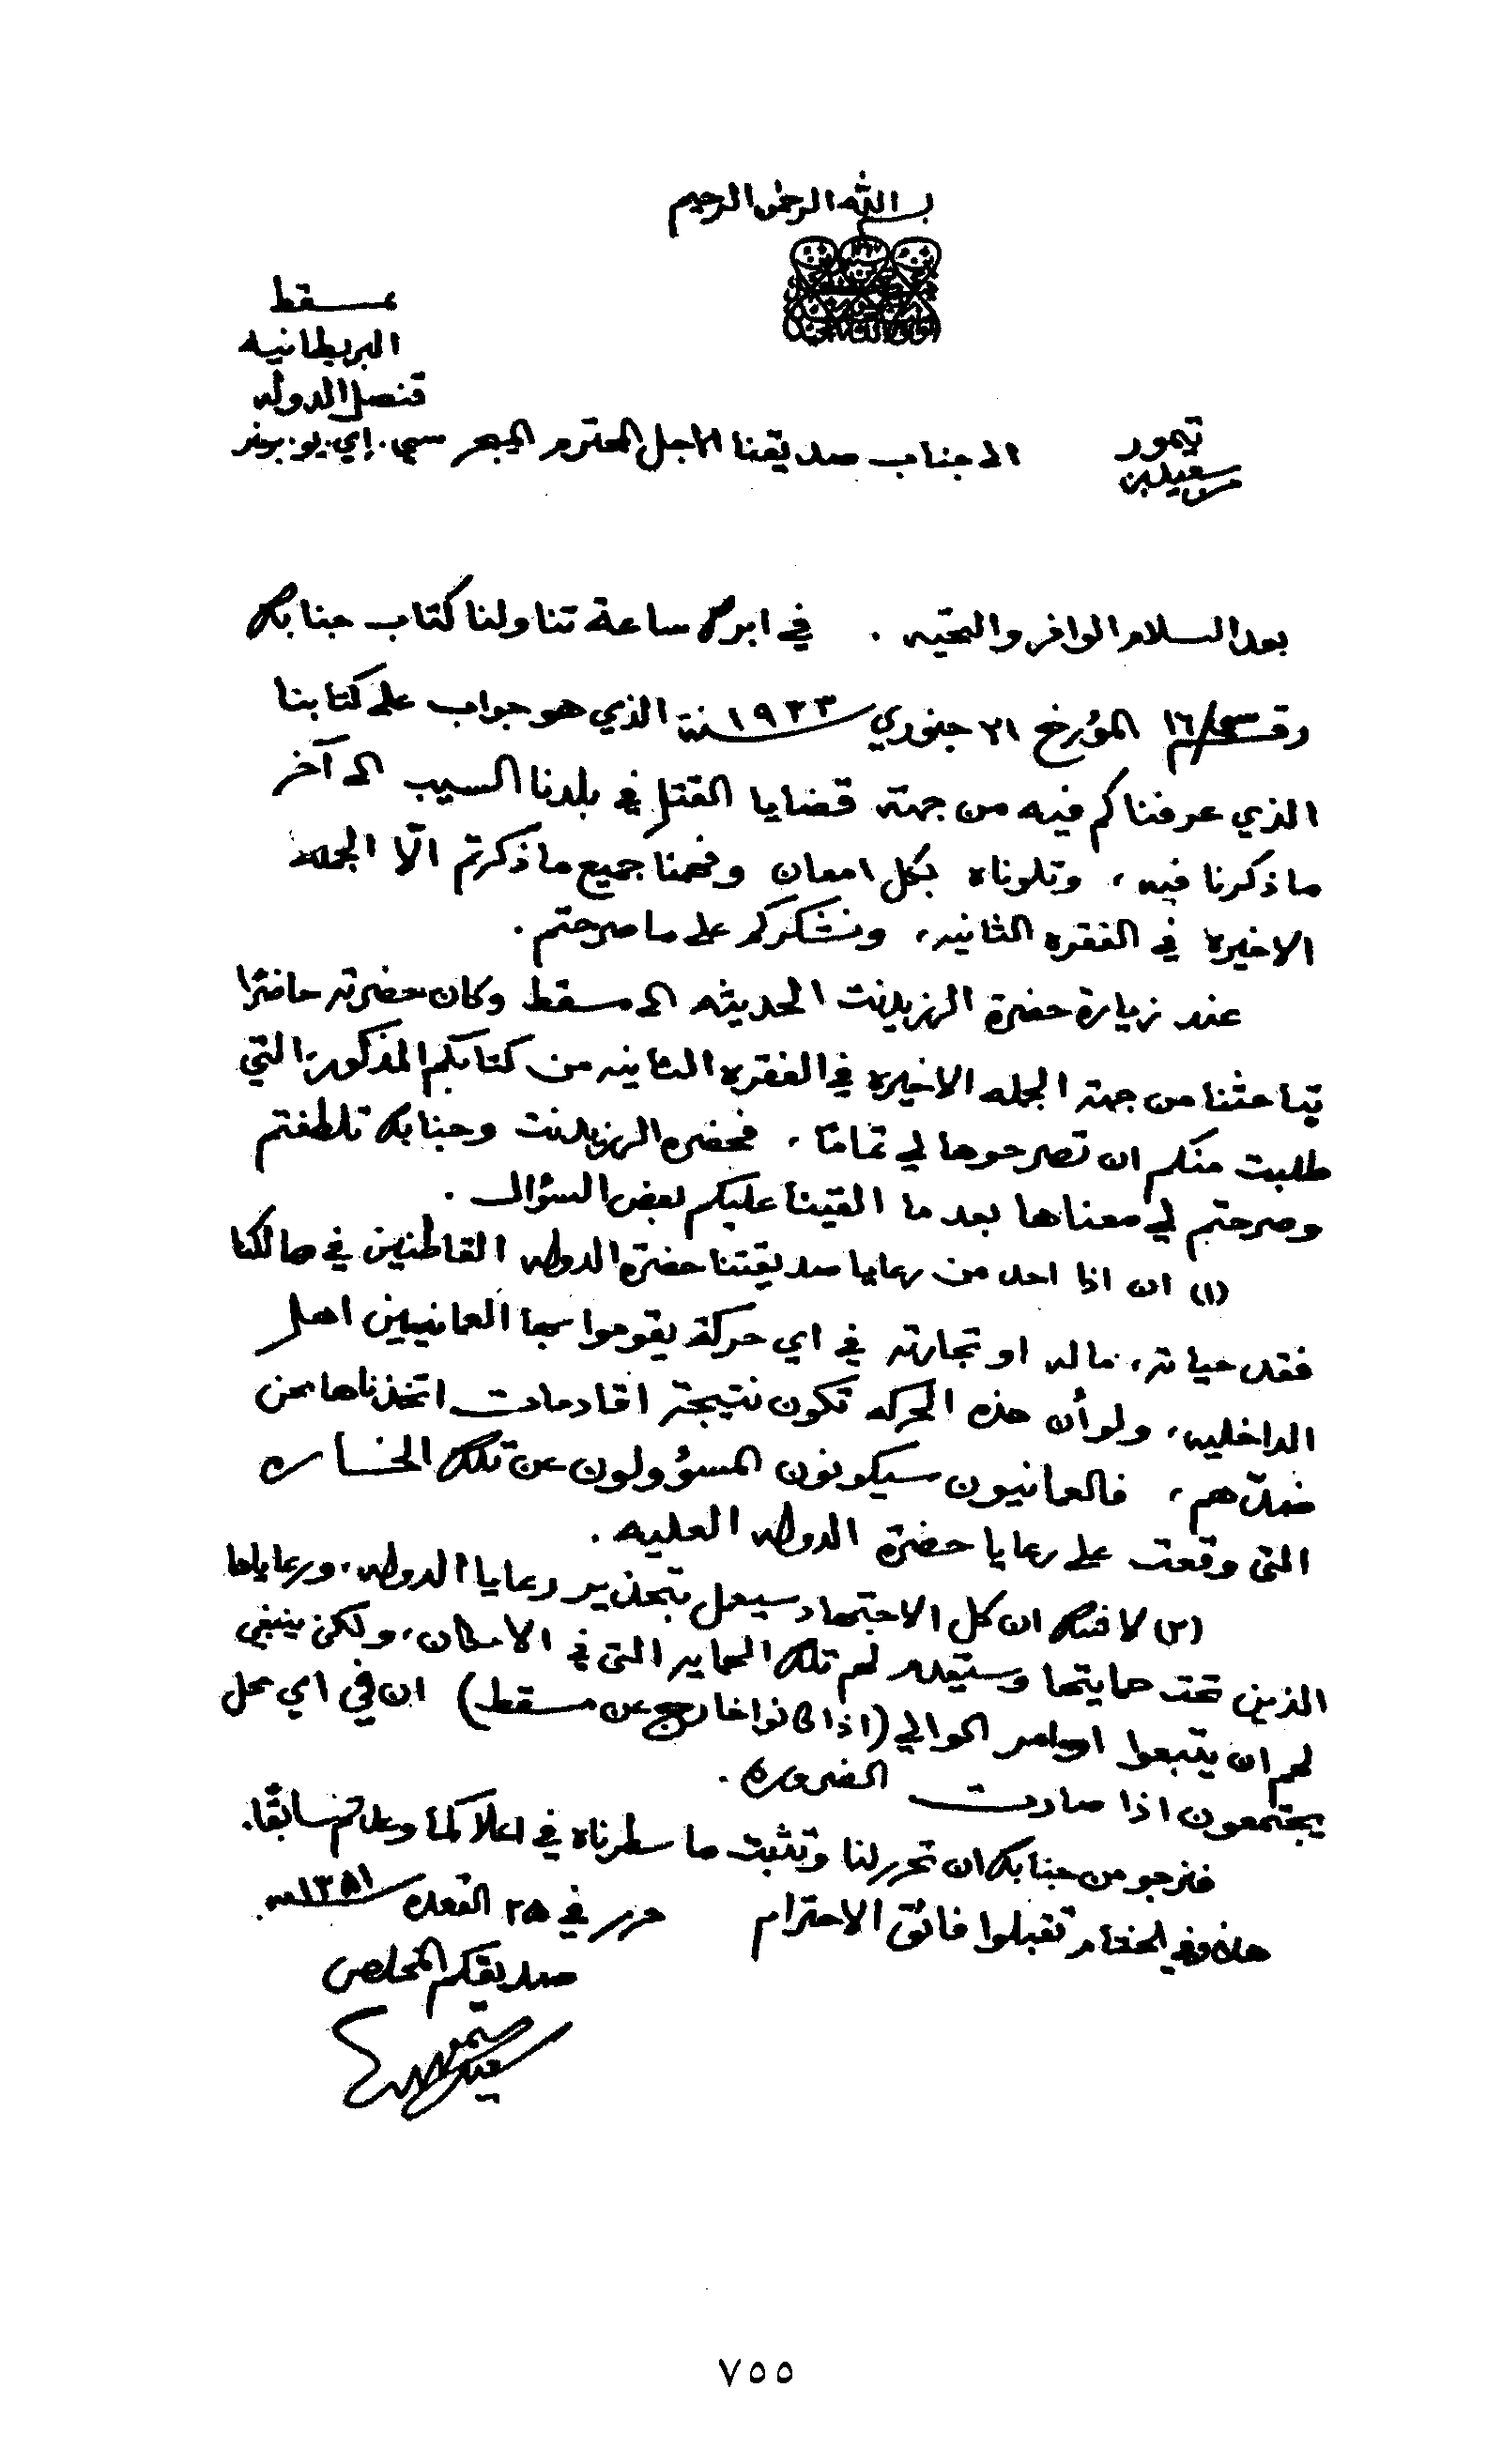 بسم الله الرحمن الرحيم
من سعيد بن تيمور
الى جناب صديقنا الاجل المحترم الميجر سي. إي. يو. بريمنر
قنصل الدوله
البريطانيه
مسقط
بعد السلام الوافر والتحيه . في ابرك ساعة تناولنا كتاب جنابك
رقم سي/١٦ المؤرخ ٢١ جنوري سنة ١٩٣٣ الذي هو جواب على كتابنا
الذي عرفناكم فيه من جهة قضايا القتل في بلدنا السيب الى آخر
ما ذكرنا فيه، وتلوناه بكل امعان وفهمنا جميع ما ذكرتم الّا الجمله
الاخيره في الفقره الثانيه، ونشكركم على ما صرحتم.
عند زيارة حضرة الرزيدنت الحديثه الى مسقط وكان حضرته حاضرًا
تباحثنا من جهة الجمله الاخيره في الفقره الثانيه من كتابكم المذكور، التي
طلبت منكم ان تصرحوها لي تمامًا، فحضره الرزيدنت وجنابك تلطفتم
وصرحتم لي معناها بعد ما القينا عليكم بعض السؤال .
(١) ان اذا احد من رعايا صديقتنا حضرة الدوله القاطنين في ممالكنا
فقد حياته، ماله او تجارته في اي حركة يقوموا بها العمانيين اهل
الداخليه، ولو أن هذه الحركه تكون نتيجة اقدامات اتخذناها نحن
ضدّهم، فالعمانيون سيكونون المسؤولون عن تلك الخساره
التي وقعت على رعايا حضرة الدوله العليه .
(٢) لا شك ان كل الاجتهاد سيعمل بتحذير رعايا الدوله، ورعاياها
الذين تحت حمايتها وستمد لهم تلك الحمايه التي في الامكان، ولكن ينبغي
لهم ان يتبعوا اوامر الوالي (اذا كانوا خارج عن مسقط) ان في اي محل
يجتمعون اذا صارت الضروره .
فنرجو من جنابك ان تحرر لنا وتثبت ما سطرناه في اعلا كما وعدتم سابقًا.
هذا وفي الختام تقبلوا فائق الاحترام حرر في ٢٥ القعده سنة ١٣٥١
صديقكم المخلص
سعيد بن تيمور
٧٥٥